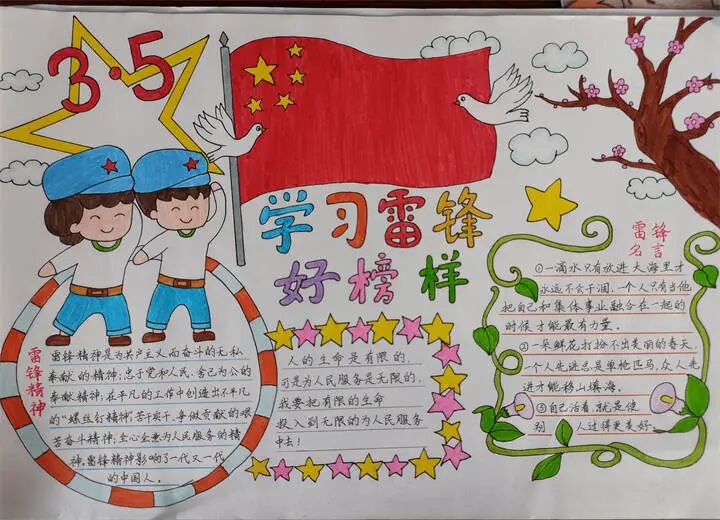 3·5
学习雷锋
好榜样
雷锋精神
雷锋精神是为共产主义而奋斗的无私
奉献的精神；忠于党和人民、舍己为公的
奉献精神；在平凡的工作中创造出不平凡
的“螺丝钉精神”；苦干实干、争做贡献的艰
苦奋斗精神；全心全意为人民服务的精
神，雷锋精神影响了一代又一代
的中国人。
人的生命是有限的，
可是为人民服务是无限的，
我要把有限的生命
投入到无限的为人民服务
中去！
雷锋
名言
①一滴水只有放进大海里才
永远不会干涸，一个人只有当他
把自己和集体事业融合在一起的
时候才能最有力量。
②一朵鲜花打扮不出美丽的春天，
一个人先进总是单枪匹马，众人先
进才能移山填海。
③自己活着，就是使
别人过得更美好。